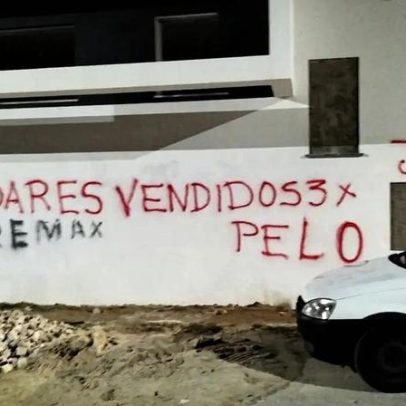 DARES VENDIDOS 3 X
REMAX PELO